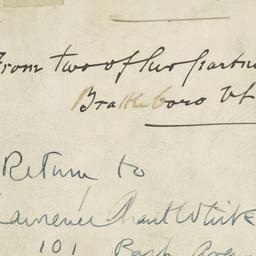 From two of his partne
Brattleboro Vt
Return to
Lawrence Grant White
101 Park Avenu